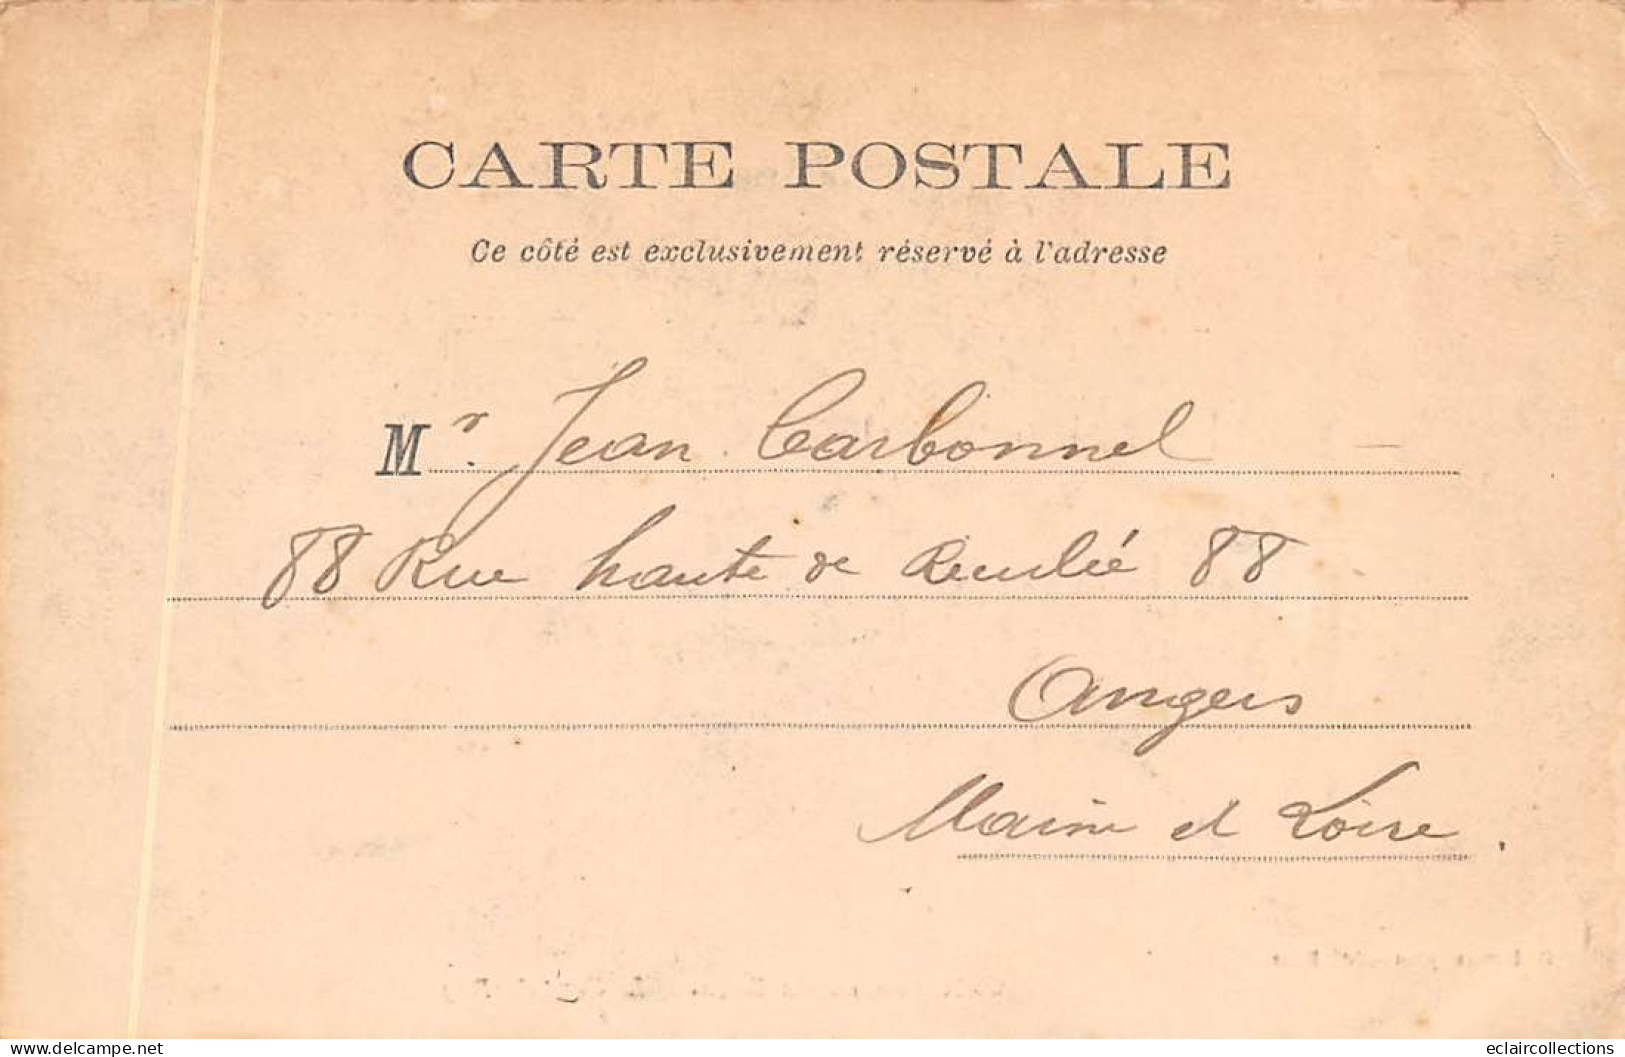 CARTE POSTALE
Ce côté est exclusivement réservé à l'adresse
Mr. Jean Carbonnel
88 Rue haute de Reculée 88
Angers
Maine et Loire.
www.delcampe.net
eclaircollections